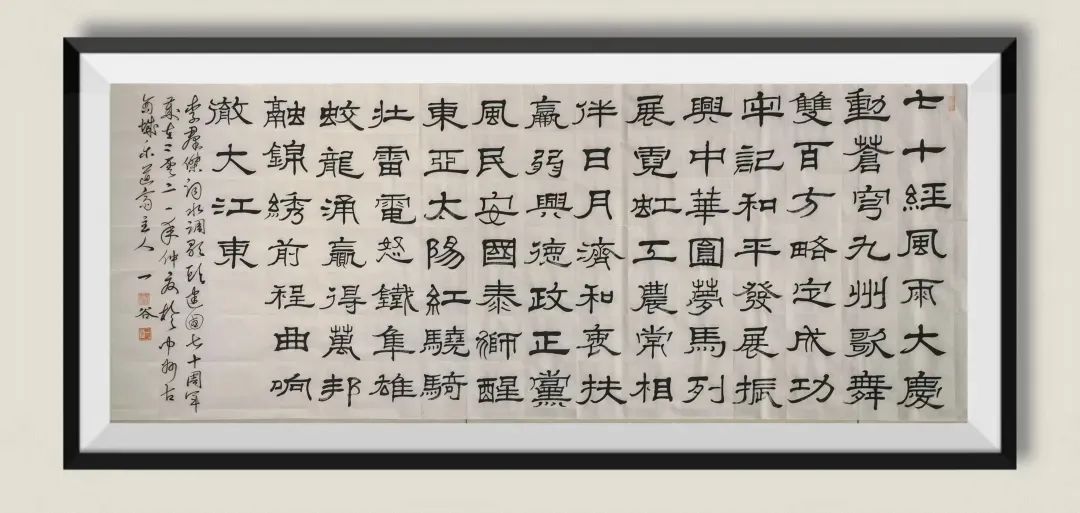 七十經風雨大慶
動蒼穹九州歌舞
雙百方略定成功
牢記和平發展振
興中華圓夢馬列
展霓虹工農常相
伴日月濟和衷扶
羸弱興德政正黨
風民安國泰獅醒
東亞太陽紅驍騎
壯雷電怒鐵隼雄
蛟龍涌贏得萬邦
融錦绣前程曲响
徹大江東
李群傑詞水调歌頭建國七十周年
歲在二零二一年仲夏於中州古
商城乐道斋主人一谷